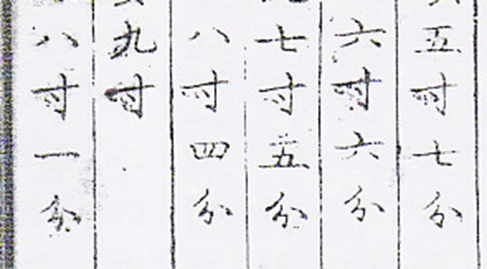 五寸七分
六寸六分
七寸五分
八寸四分
九寸
八寸一分